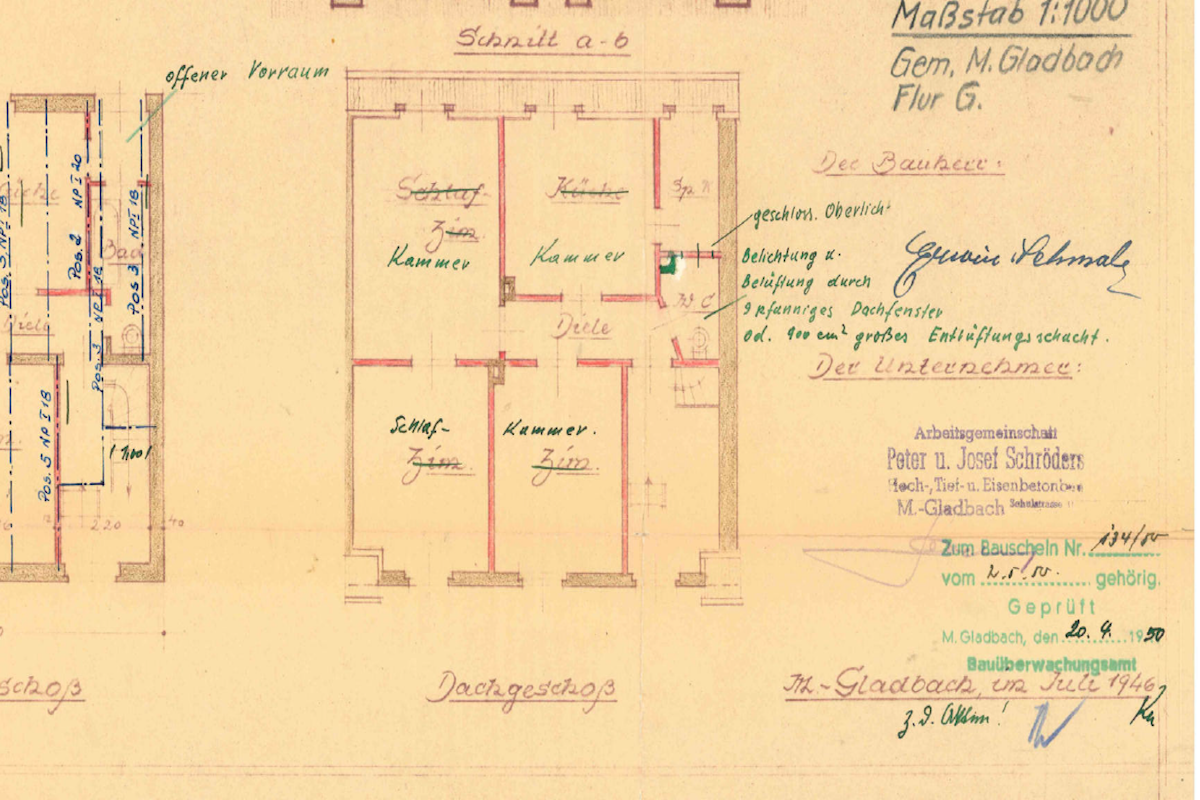 Schnitt a-b
Maßstab 1:1000
Gem. M. Gladbach
Flur G.
offener Vorraum
Der Bauherr:
Schlaf-
Zim.
Kammer
Küche
Kammer
Spk
geschloss. Oberlicht
Belichtung u.
Belüftung durch
9 pfanniges Dachfenster
od. 900 cm² großes Entlüftungsschacht.
W C
Diele
Erwin Schmalz
Der Unternehmer:
Schlaf-
Zim.
Kammer.
Zim.
Pos. 2 NP I 20
Pos 3 NP I 18
Pos. 3 NP I 18
Pos. 3 NP I 18
Pos. 5 NP I 18
Bad
Diele
220
40
Arbeitsgemeinschaft
Peter u. Josef Schröders
Hoch-, Tief- u. Eisenbetonbau
M.-Gladbach
Zum Bauschein Nr. 134/50
vom 2.5.50. gehörig.
Geprüft
M. Gladbach, den 20. 4. 1950
Bauüberwachungsamt
schoß
Dachgeschoß
M.-Gladbach, im Juli 1946
z. d. Akten!